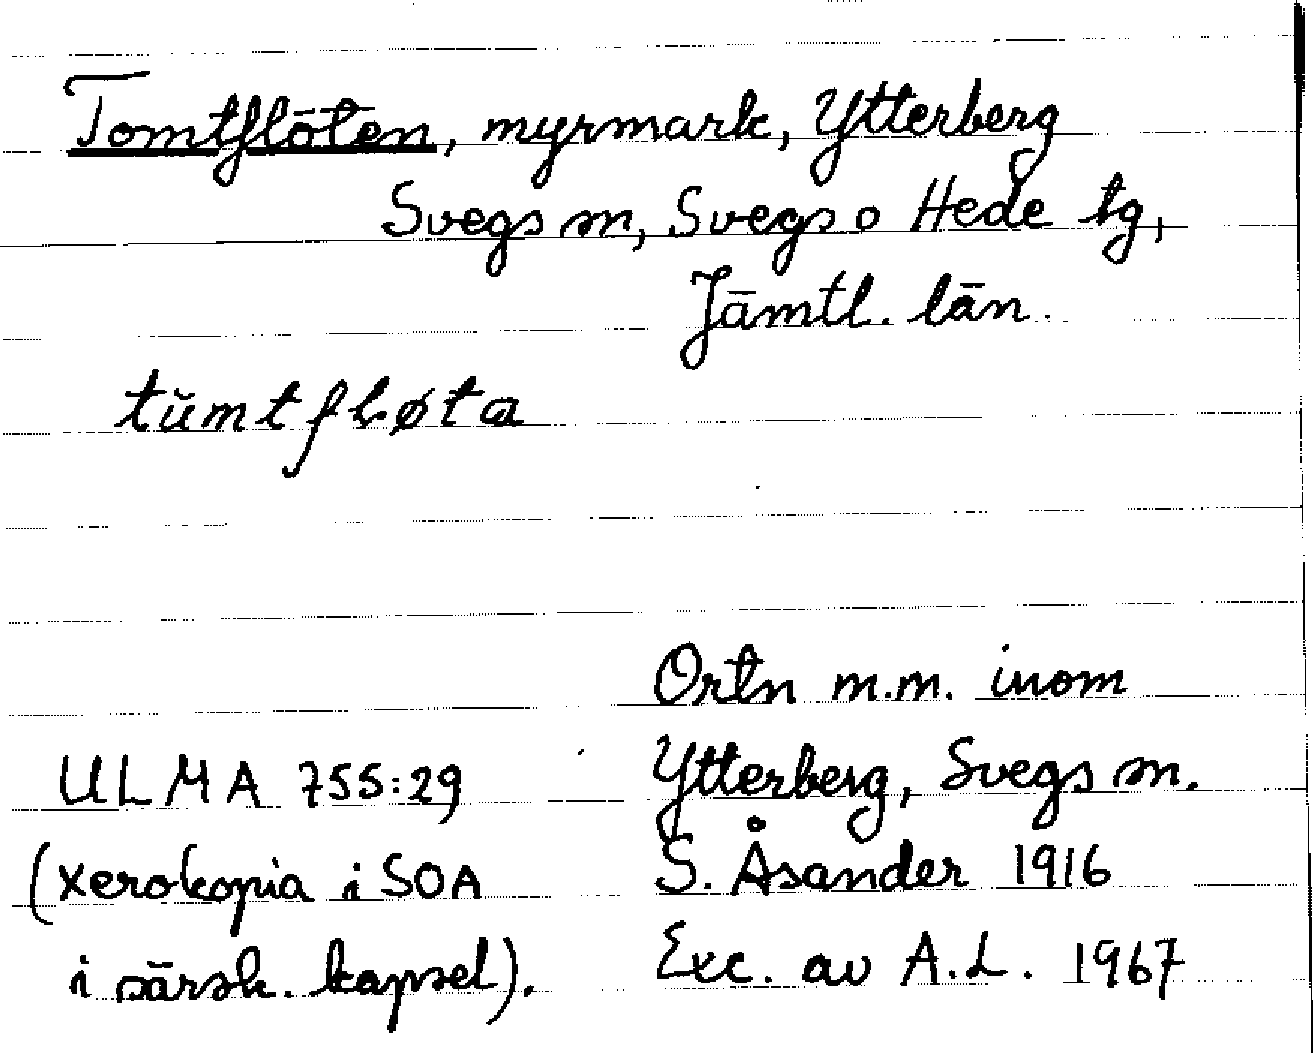 Tomtflöten, myrmark, Ytterberg
Svegs sn, Svegs o Hede tg,
Jämtl. län.
tŭmtfløta
Ortn m.m. inom
Ytterberg, Svegs sn.
ULMA 755:29
S. Åsander 1916
(xerokopia i SOA
Exc. av A.L. 1967
i särsk. kapsel).